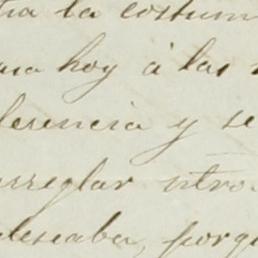 tra la costum
ana hoy á las
ferencia y se
arreglar otro
deseaba, porq